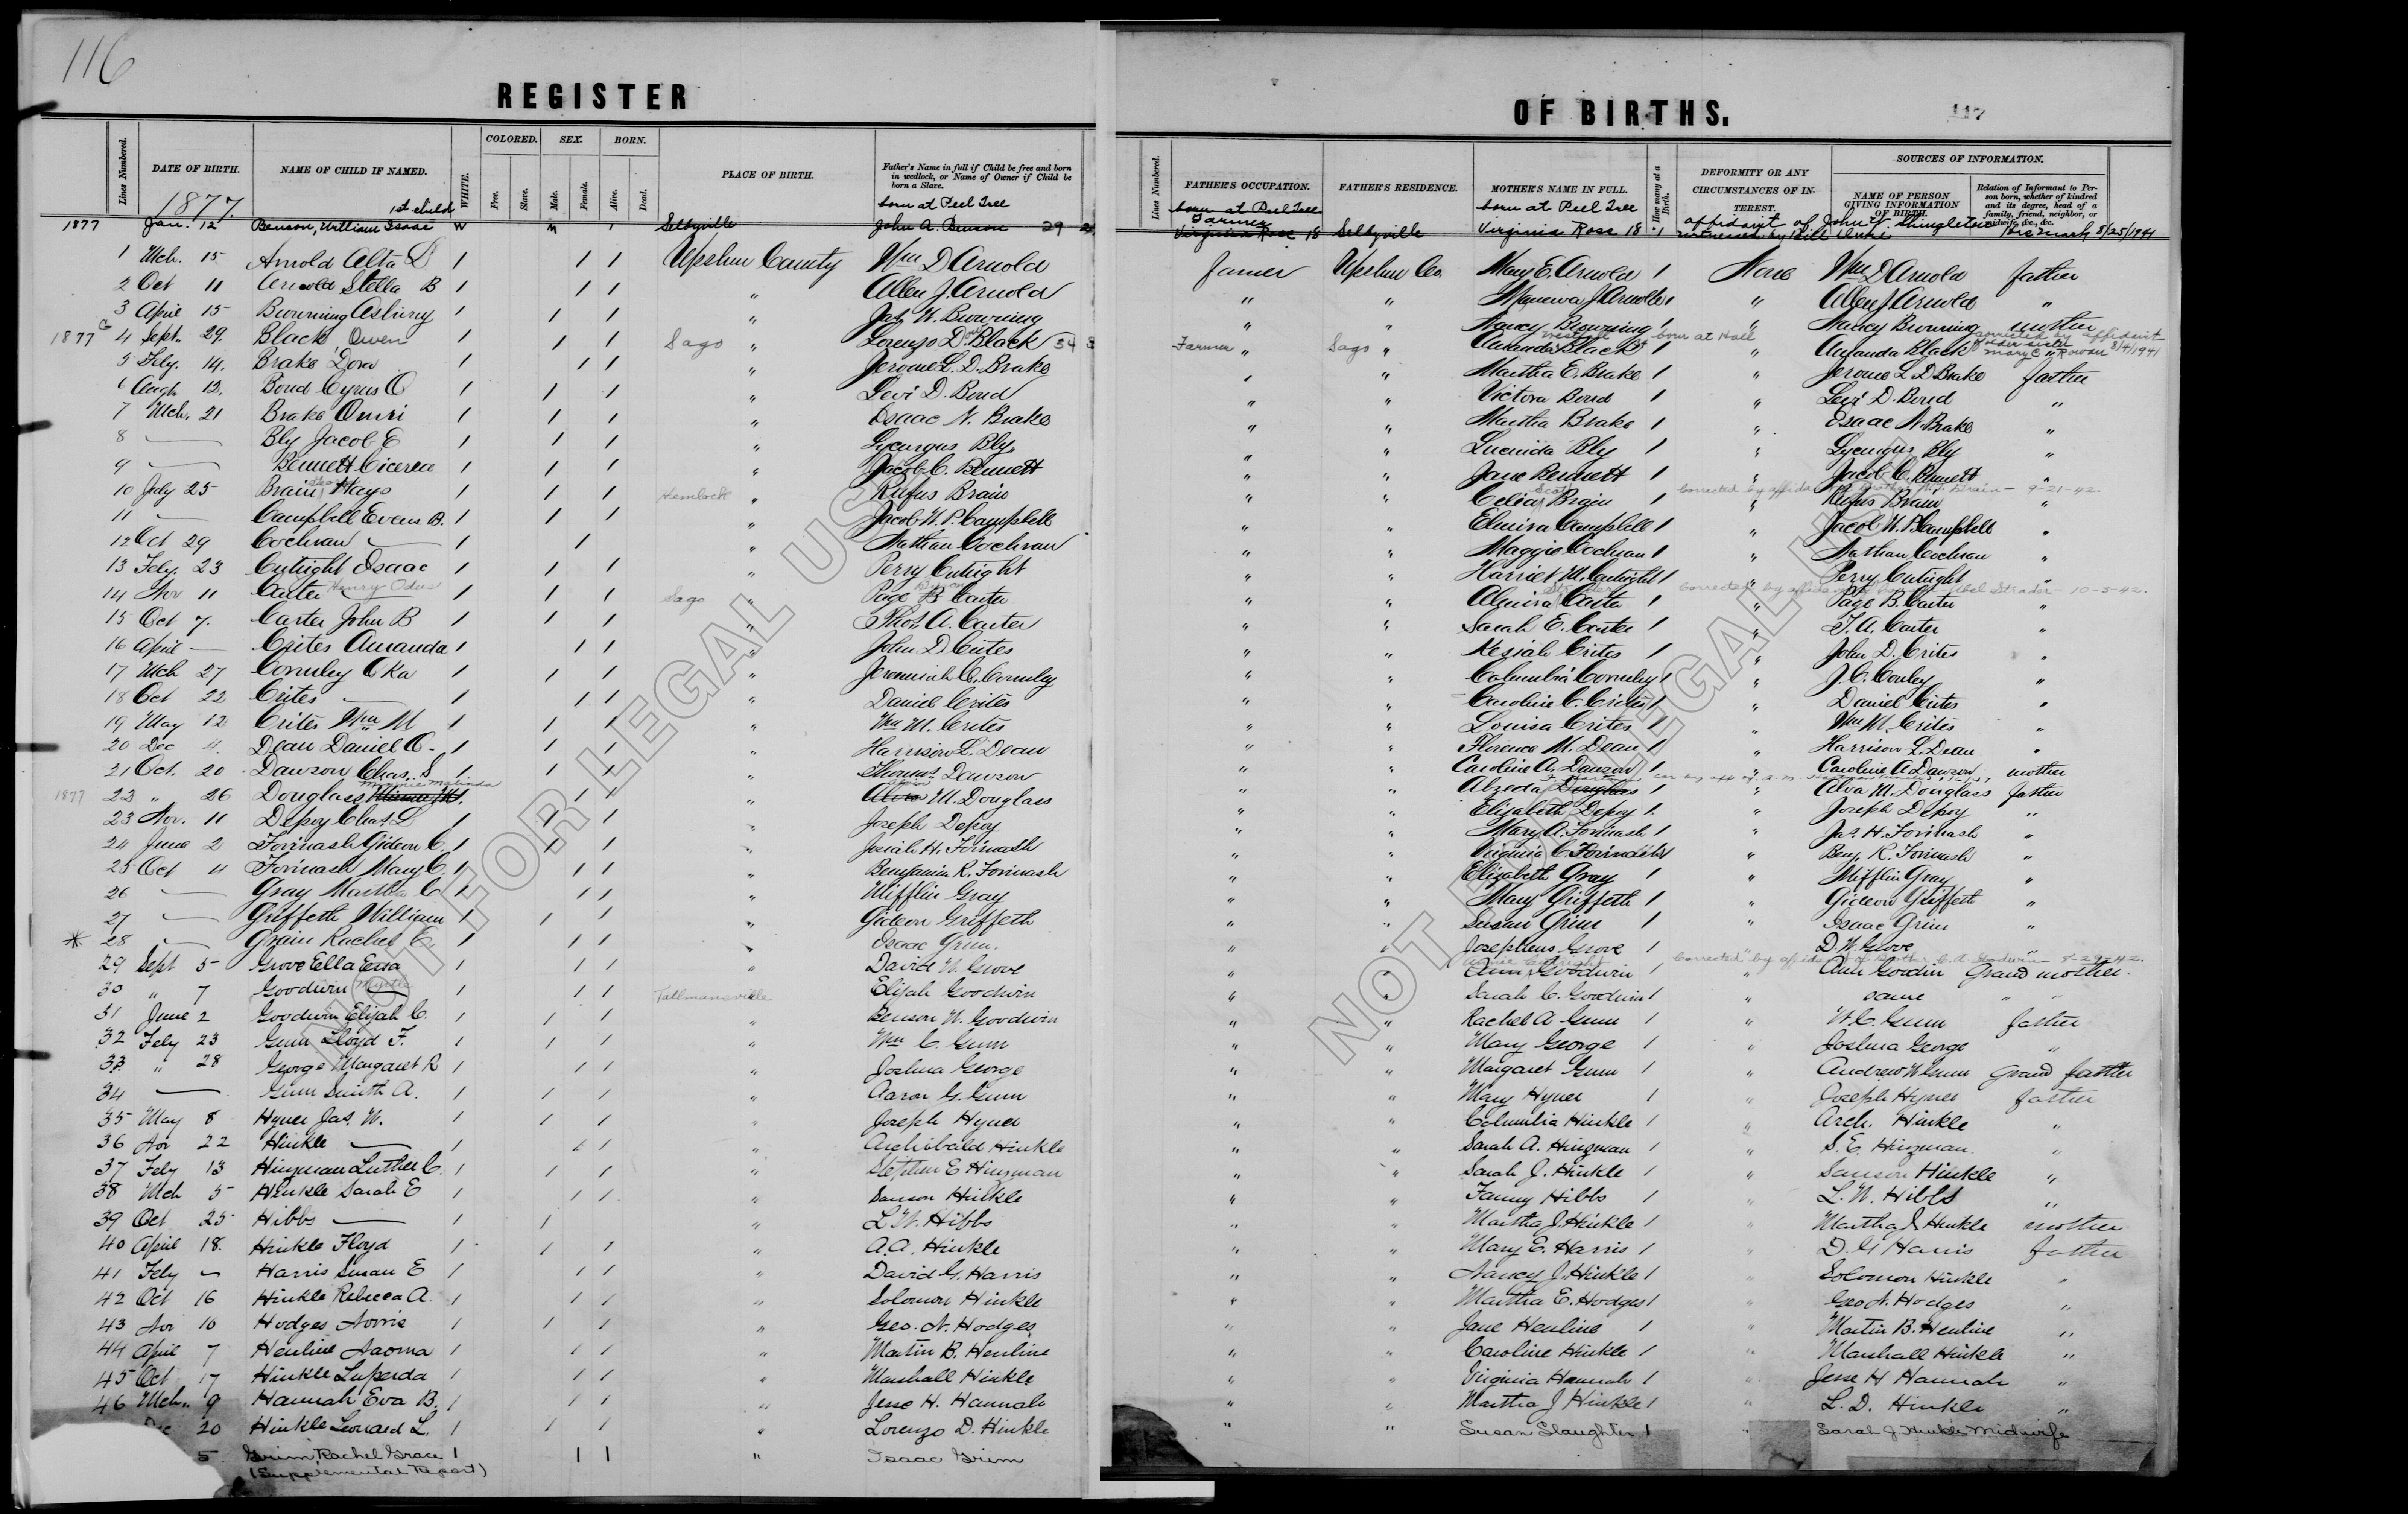 116
REGISTER
Lines Numbered.
DATE OF BIRTH.
NAME OF CHILD IF NAMED.
WHITE.
COLORED.
Free.
Slave.
SEX.
Male.
Female.
BORN.
Alive.
Dead.
PLACE OF BIRTH.
Father's Name in full if Child be free and born in wedlock, or Name of Owner if Child be born a Slave.
1877.
1st child
born at Peel Tree
1877 Jan. 12 Benson, William Isaac W M 1 Selbyville John A Benson 29
1 Mch. 15 Arnold Alta D 1 1 1 Upshur County Wm D Arnold
2 Oct 11 Arnold Stella B 1 1 1 " Allen J. Arnold
3 April 15 Browning Asbury 1 1 1 " Jas W. Browning
1877 4 Sept. 29. Black Owen 1 1 1 Sago " Lorenzo D. Black 34
5 Feby. 14. Brake Dora 1 1 1 " Jerome L. D. Brake
6 Augh. 12. Bond Cyrus O 1 1 1 " Levi D. Bond
7 Mch. 21 Brake Omri 1 1 1 " Isaac N. Brake
8 — Bly Jacob E 1 1 1 " Lycurgus Bly
9 — Bennett Cicerea 1 1 1 " Jacob C. Bennett
10 July 25 Brain Hays 1 1 1 Hemlock " Rufus Brain
11 — Campbell Evans B. 1 1 1 " Jacob W. P. Campbell
12 Oct 29 Cochran — 1 1 " Nathan Cochran
13 Feby. 23 Cutright Isaac 1 1 1 " Perry Cutright
14 Nov 11 Carter Henry Odus 1 1 1 Sago " Page B Carter
15 Oct 7. Carter John B 1 1 1 " Thos. A. Carter
16 April — Crites Amanda 1 1 1 " John D. Crites
17 Mch 27 Conley Oka 1 1 1 " Jeremiah C. Conley
18 Oct 22 Crites — 1 1 1 " Daniel Crites
19 May 12 Crites Wm M 1 1 1 " Wm M. Crites
20 Dec 4. Dean Daniel O. 1 1 1 " Harrison L. Dean
21 Oct. 20 Dawson Chas. S 1 1 1 " Thomas Dawson
1877 22 " 26 Douglass Minnie Malinda 1 1 1 " M. Douglass
23 Nov. 11 Depoy Chas. L 1 1 1 " Joseph Depoy
24 June 2 Forinash Gideon C. 1 1 1 " Josiah H. Forinash
25 Oct 11 Forinash Mary C. 1 1 1 " Benjamin R. Forinash
26 — Gray Martha C 1 1 1 " Mifflin Gray
27 — Griffeth William 1 1 1 " Gideon Griffeth
* 28 — Grain Rachel E 1 1 1 " Isaac Grim.
29 Sept 5 Grove Ella Essa 1 1 1 " David W. Grove
30 " 7 Goodwin Myrtle 1 1 1 Tallmansville Elijah Goodwin
31 June 2 Goodwin Elijah C. 1 1 1 " Benson W. Goodwin
32 Feby 23 Gum Lloyd F. 1 1 1 " Wm C. Gum
33 " 28 George Margaret R 1 1 1 " Joshua George
34 — Gum Smith A. 1 1 1 " Aaron G. Gum
35 May 8 Hyner Jas. W. 1 1 1 " Joseph Hyner
36 Nov 22 Hinkle — 1 1 1 " Archibald Hinkle
37 Feby 13 Hinzman Luther C. 1 1 1 " Stephen E Hinzman
38 Mch 5 Hinkle Sarah E 1 1 1 " Sanson Hinkle
39 Oct 25 Hibbs — 1 1 " L W. Hibbs
40 April 18. Hinkle Floyd 1 1 1 " A. A. Hinkle
41 Feby — Harris Susan E 1 1 1 " David G. Harris
42 Oct 16 Hinkle Rebecca A. 1 1 1 " Solomon Hinkle
43 Nov 10 Hodges Norris 1 1 1 " Geo. N. Hodges
44 April 7 Henline Naoma 1 1 1 " Martin B. Henline
45 Oct 17 Hinkle Luperda 1 1 1 " Marshall Hinkle
46 Mch. 9 Hannah Eva B. 1 1 1 " Jesse H. Hannah
20 Hinkle Leonard L. 1 1 1 " Lorenzo D. Hinkle
5 Grim, Rachel Grace 1 1 1 " Isaac Grim
(Supplemental Report)
OF BIRTHS.
117
Lines Numbered.
FATHER'S OCCUPATION.
FATHER'S RESIDENCE.
MOTHER'S NAME IN FULL.
How many at a Birth.
DEFORMITY OR ANY CIRCUMSTANCES OF INTEREST.
SOURCES OF INFORMATION.
NAME OF PERSON GIVING INFORMATION OF BIRTH.
Relation of Informant to Person born, whether of kindred and its degree, head of a family, friend, neighbor, or midwife, &c., &c.
born at Peel Tree
Farmer
born at Peel Tree
Virginia Ross 18 Selbyville Virginia Ross 18 1 affidavit of John W. Shingleton his mark 8/25/1941
farmer Upshur Co. Mary E. Arnold 1 None Wm D Arnold father
" " J Arnold 1 " Allen J Arnold "
" " Nancy Browning 1 " Nancy Browning mother
Farmer " Sago " Amanda Black 1 born at Hall " Amanda Black " corrected by affidavit older sister Mary C. Rowan 8/4/1941
" " Martha E. Brake 1 " Jerome L D Brake father
" " Victora Bond 1 " Levi D. Bond "
" " Martha Brake 1 " Isaac N. Brake "
" " Lucinda Bly 1 " Lycurgus Bly "
" " Jane Bennett 1 " Jacob C. Bennett "
" " Celia Scott Brain 1 " Rufus Brain " Corrected by affidavit of brother Brain - 9-21-42.
" " Elmira Campbell 1 " Jacob W. P. Campbell "
" " Maggie Cochran 1 " Nathan Cochran "
" " Harriet M. Cutright 1 " Perry Cutright "
" " Almira Carter 1 " Page B. Carter " Corrected by affidavit Strader - 10-5-42.
" " Sarah E. Carter 1 " T. A. Carter "
" " Kesiah Crites 1 " John D. Crites "
" " Columbia Conley 1 " J. C. Conley "
" " Caroline C. Crites 1 " Daniel Crites "
" " Louisa Crites 1 " Wm M. Crites "
" " Florence M. Dean 1 " Harrison L. Dean "
" " Caroline A. Dawson 1 " Caroline A Dawson mother
" " Alzeda Douglass 1 " Alva M. Douglass father
" " Elizabeth Depoy 1 " Joseph Depoy "
" " Mary A. Forinash 1 " Jas. H. Forinash "
" " Virginia C. Forinash 1 " Benj. R. Forinash "
" " Elizabeth Gray 1 " Mifflin Gray "
" " Mary Griffeth 1 " Gideon Griffeth "
" " Susan Grim 1 " Isaac Grim "
" " Josephens Grove 1 " D. W. Grove
" " Ann Goodwin 1 " Ann Goodin Grand mother. Corrected by affidavit of brother C. A. Goodwin - 8-29-42.
" " Sarah C. Goodwin 1 " same " "
" " Rachel A Gum 1 " W. C. Gum father
" " Mary George 1 " Joshua George "
" " Margaret Gum 1 " Andrew W Gum Grand father
" " Mary Hyner 1 " Joseph Hyner father
" " Columbia Hinkle 1 " Arch. Hinkle "
" " Sarah A. Hinzman 1 " S. E. Hinzman "
" " Sarah J. Hinkle 1 " Sanson Hinkle "
" " Fanny Hibbs 1 " L. W. Hibbs "
" " Martha J Hinkle 1 " Martha J Hinkle mother
" " Mary E. Harris 1 " D. G Harris father
" " Nancy J. Hinkle 1 " Solomon Hinkle "
" " Martha E. Hodges 1 " Geo N. Hodges "
" " Jane Henline 1 " Martin B. Henline "
" " Caroline Hinkle 1 " Marshall Hinkle "
" " Virginia Hannah 1 " Jesse H Hannah "
" " Martha J Hinkle 1 " L. D. Hinkle "
" " Susan Slaughter 1 " Sarah J Hinkle Midwife
NOT FOR LEGAL USE
NOT FOR LEGAL USE